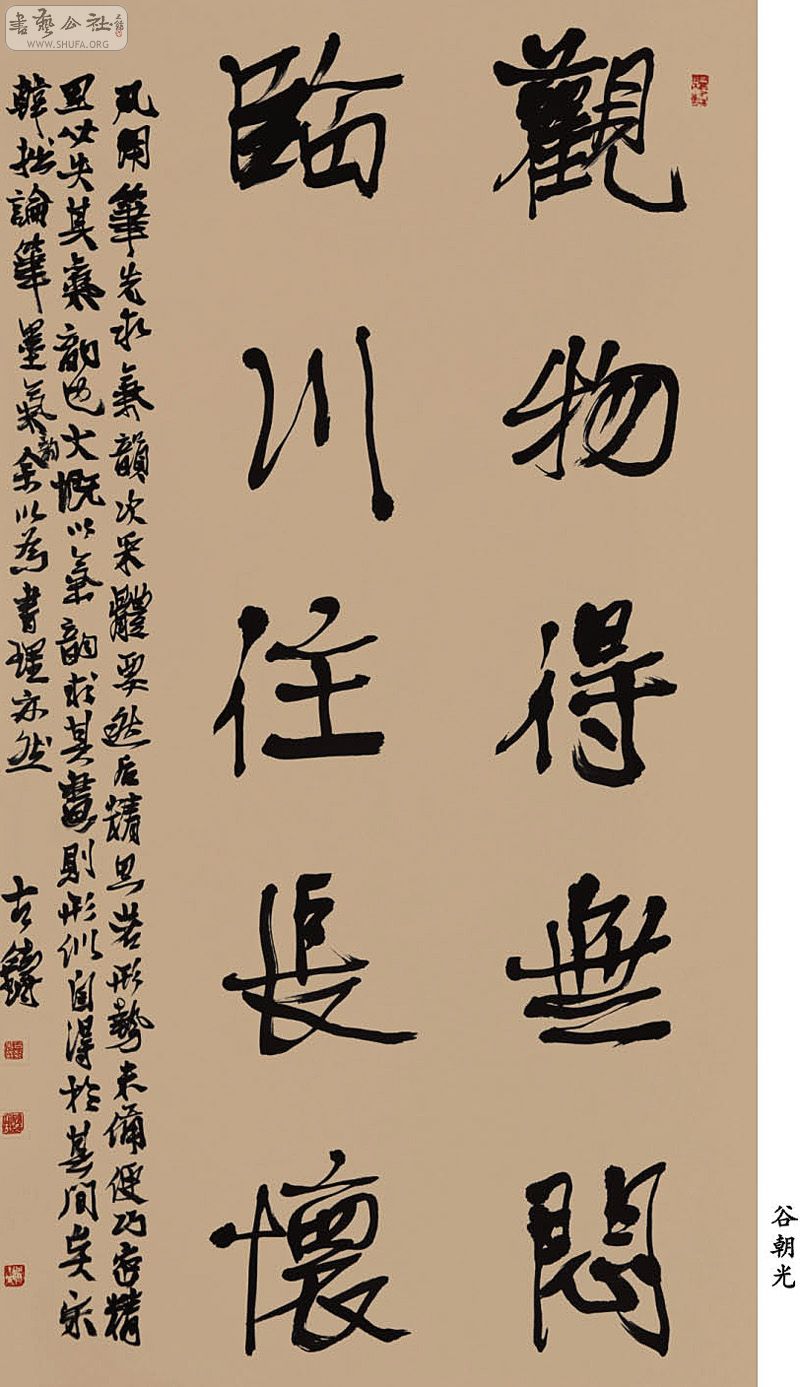 書藝公社
WWW.SHUFA.ORG
觀物得無悶
臨川任長懷
凡用筆先求氣韻次采體要然后精思若形勢未備便巧密精
思必失其氣韵也大慨以氣韵求其畫則形似自得於其間矣宋
韓拙論筆墨氣韵余以為書理亦然
古鑄
谷朝光